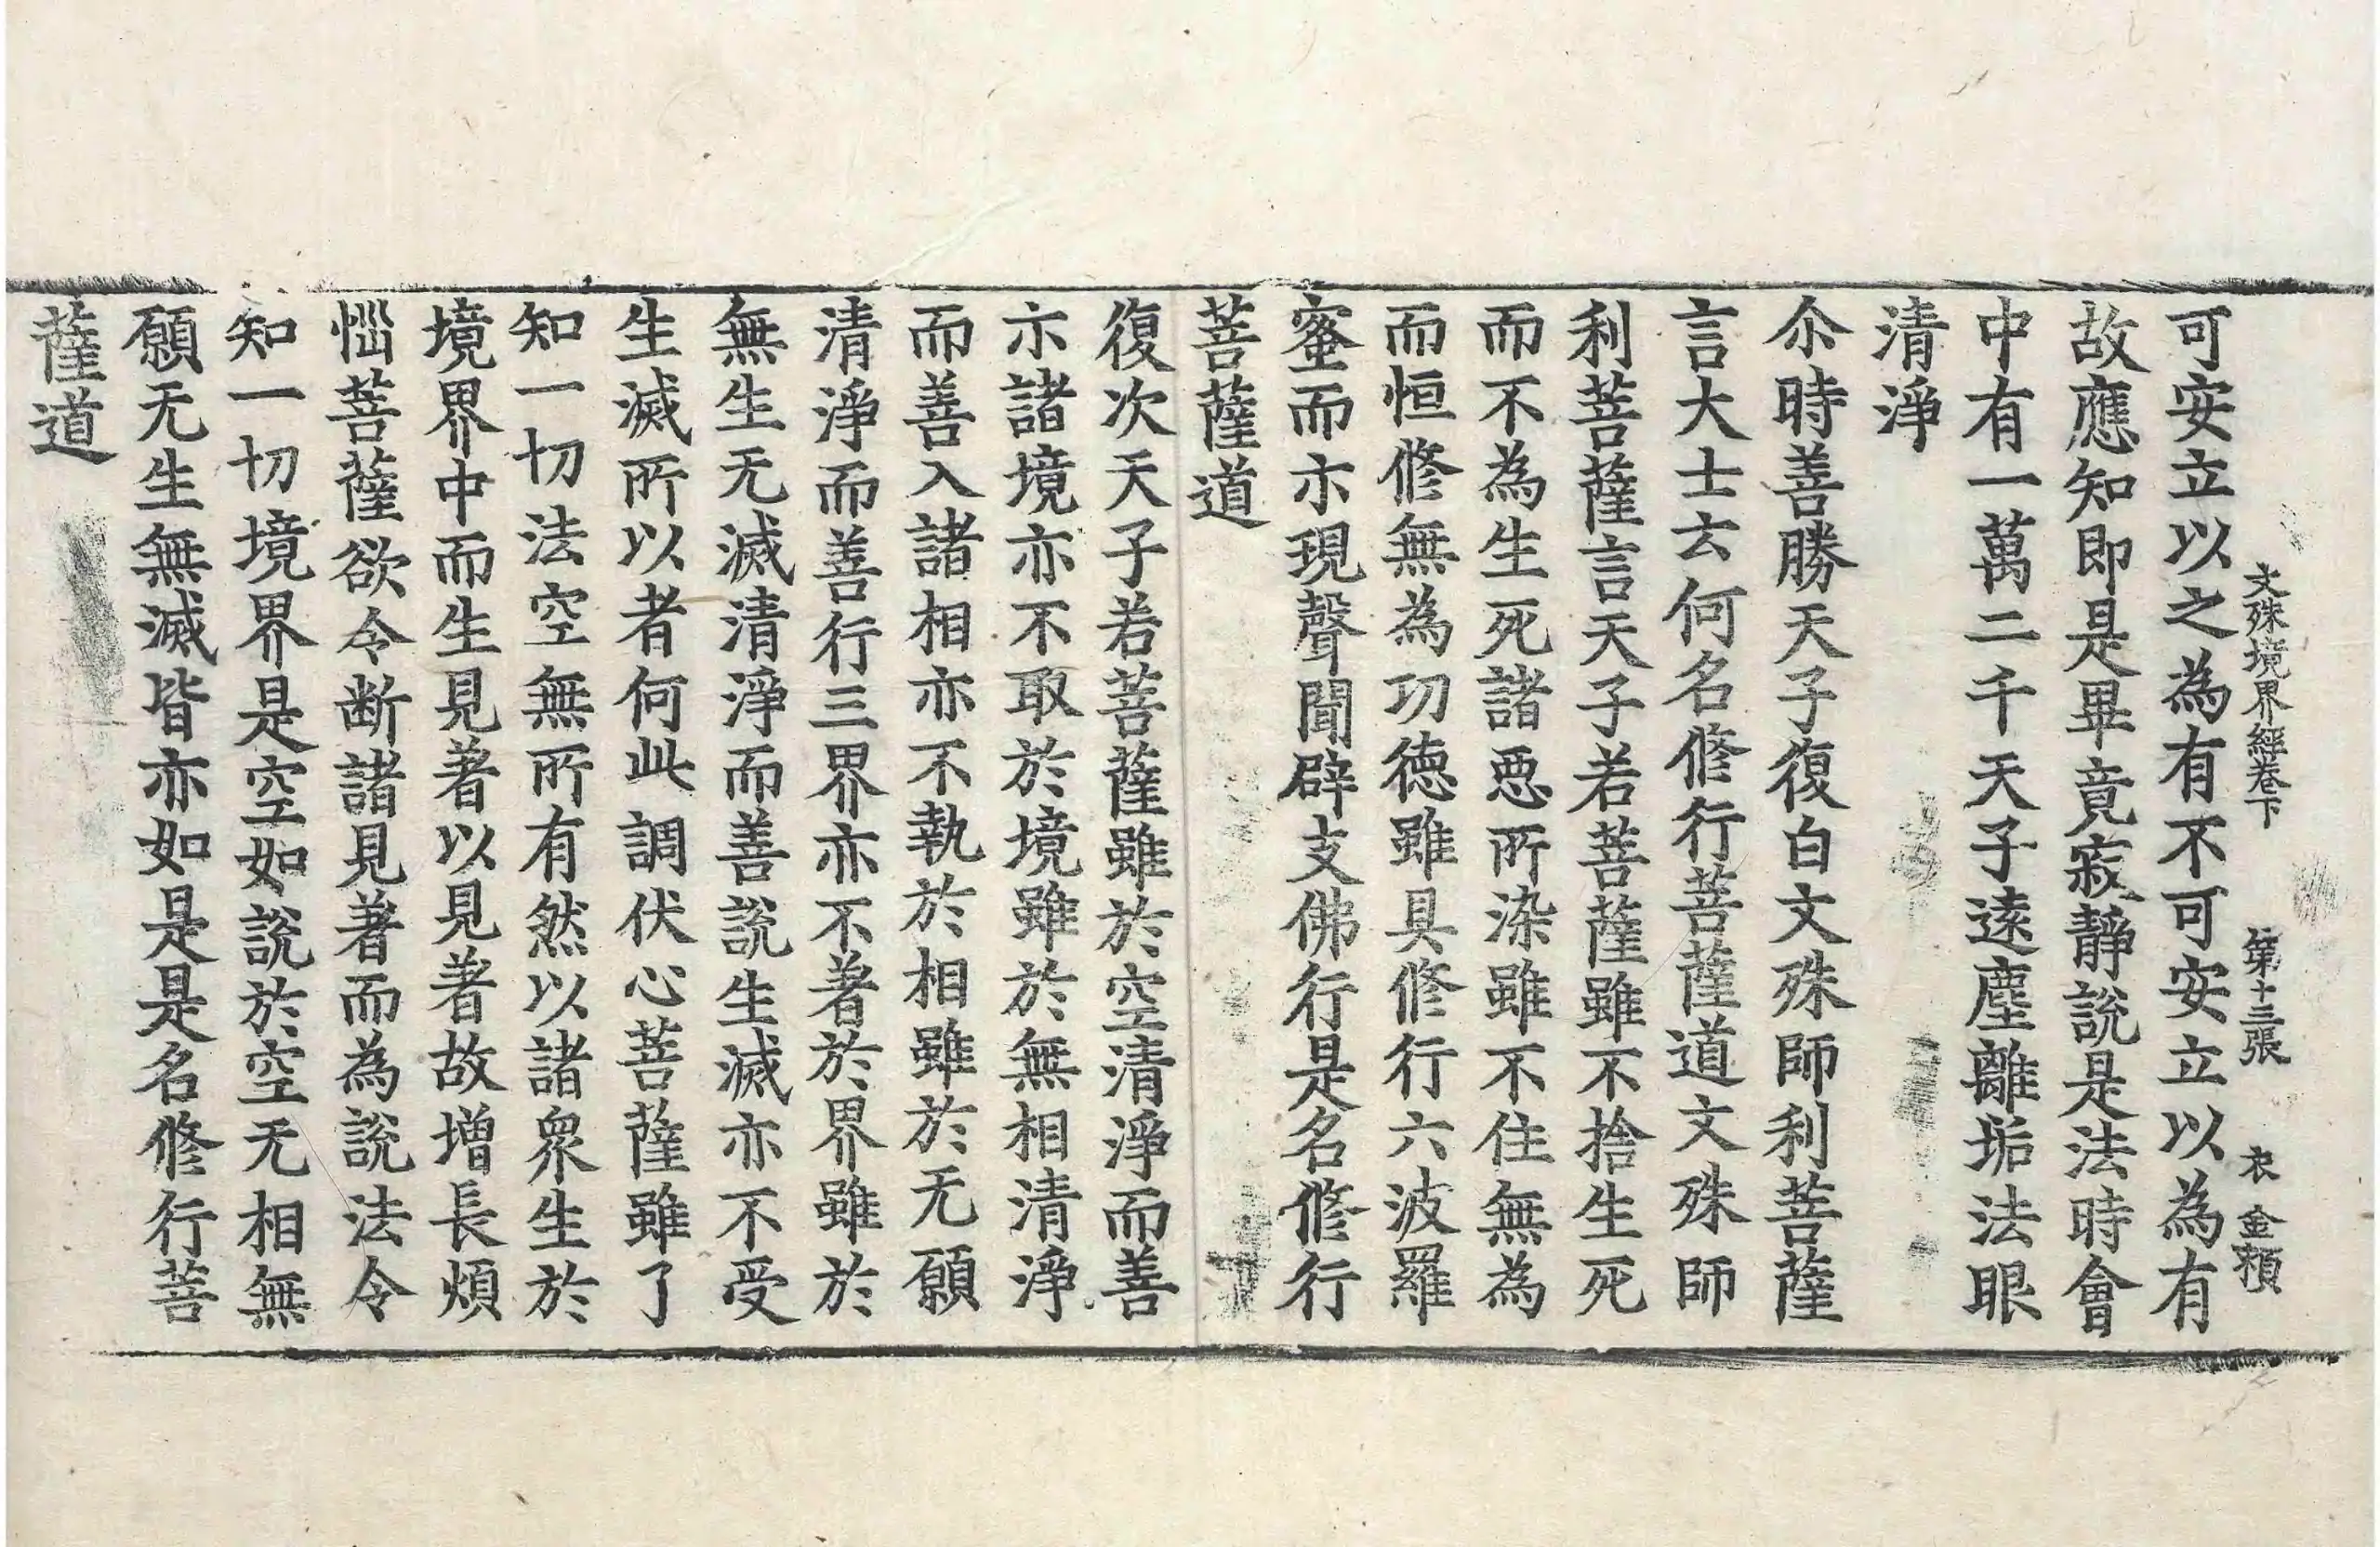 文殊境界經卷下 第十三張 衣 金賴
可安立以之為有不可安立以為有
故應知即是畢竟寂靜說是法時會
中有一萬二千天子遠塵離垢法眼
清淨
尒時善勝天子復白文殊師利菩薩
言大士云何名修行菩薩道文殊師
利菩薩言天子若菩薩雖不捨生死
而不為生死諸惡所染雖不住無為
而恒修無為功德雖具修行六波羅
蜜而示現聲聞辟支佛行是名修行
菩薩道
復次天子若菩薩雖於空清淨而善
示諸境亦不取於境雖於無相清淨
而善入諸相亦不執於相雖於无願
清淨而善行三界亦不著於界雖於
無生无滅清淨而善說生滅亦不受
生滅所以者何此調伏心菩薩雖了
知一切法空無所有然以諸衆生於
境界中而生見著以見著故增長煩
惱菩薩欲令断諸見著而為說法令
知一切境界是空如說於空无相無
願无生無滅皆亦如是是名修行菩
薩道